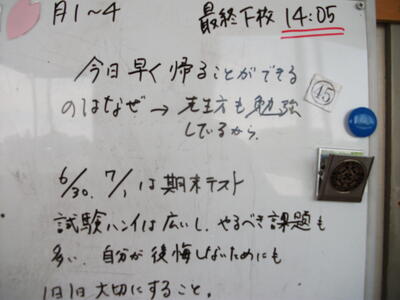 月1～4 最終下校 14:05
今日早く帰ることができる
のはなぜ→先生方も勉強 45
しているから。
6/30. 7/1 は期末テスト
試験ハンイは広いし、やるべき課題も
多い. 自分が後悔しないためにも
1日1日大切にすること。